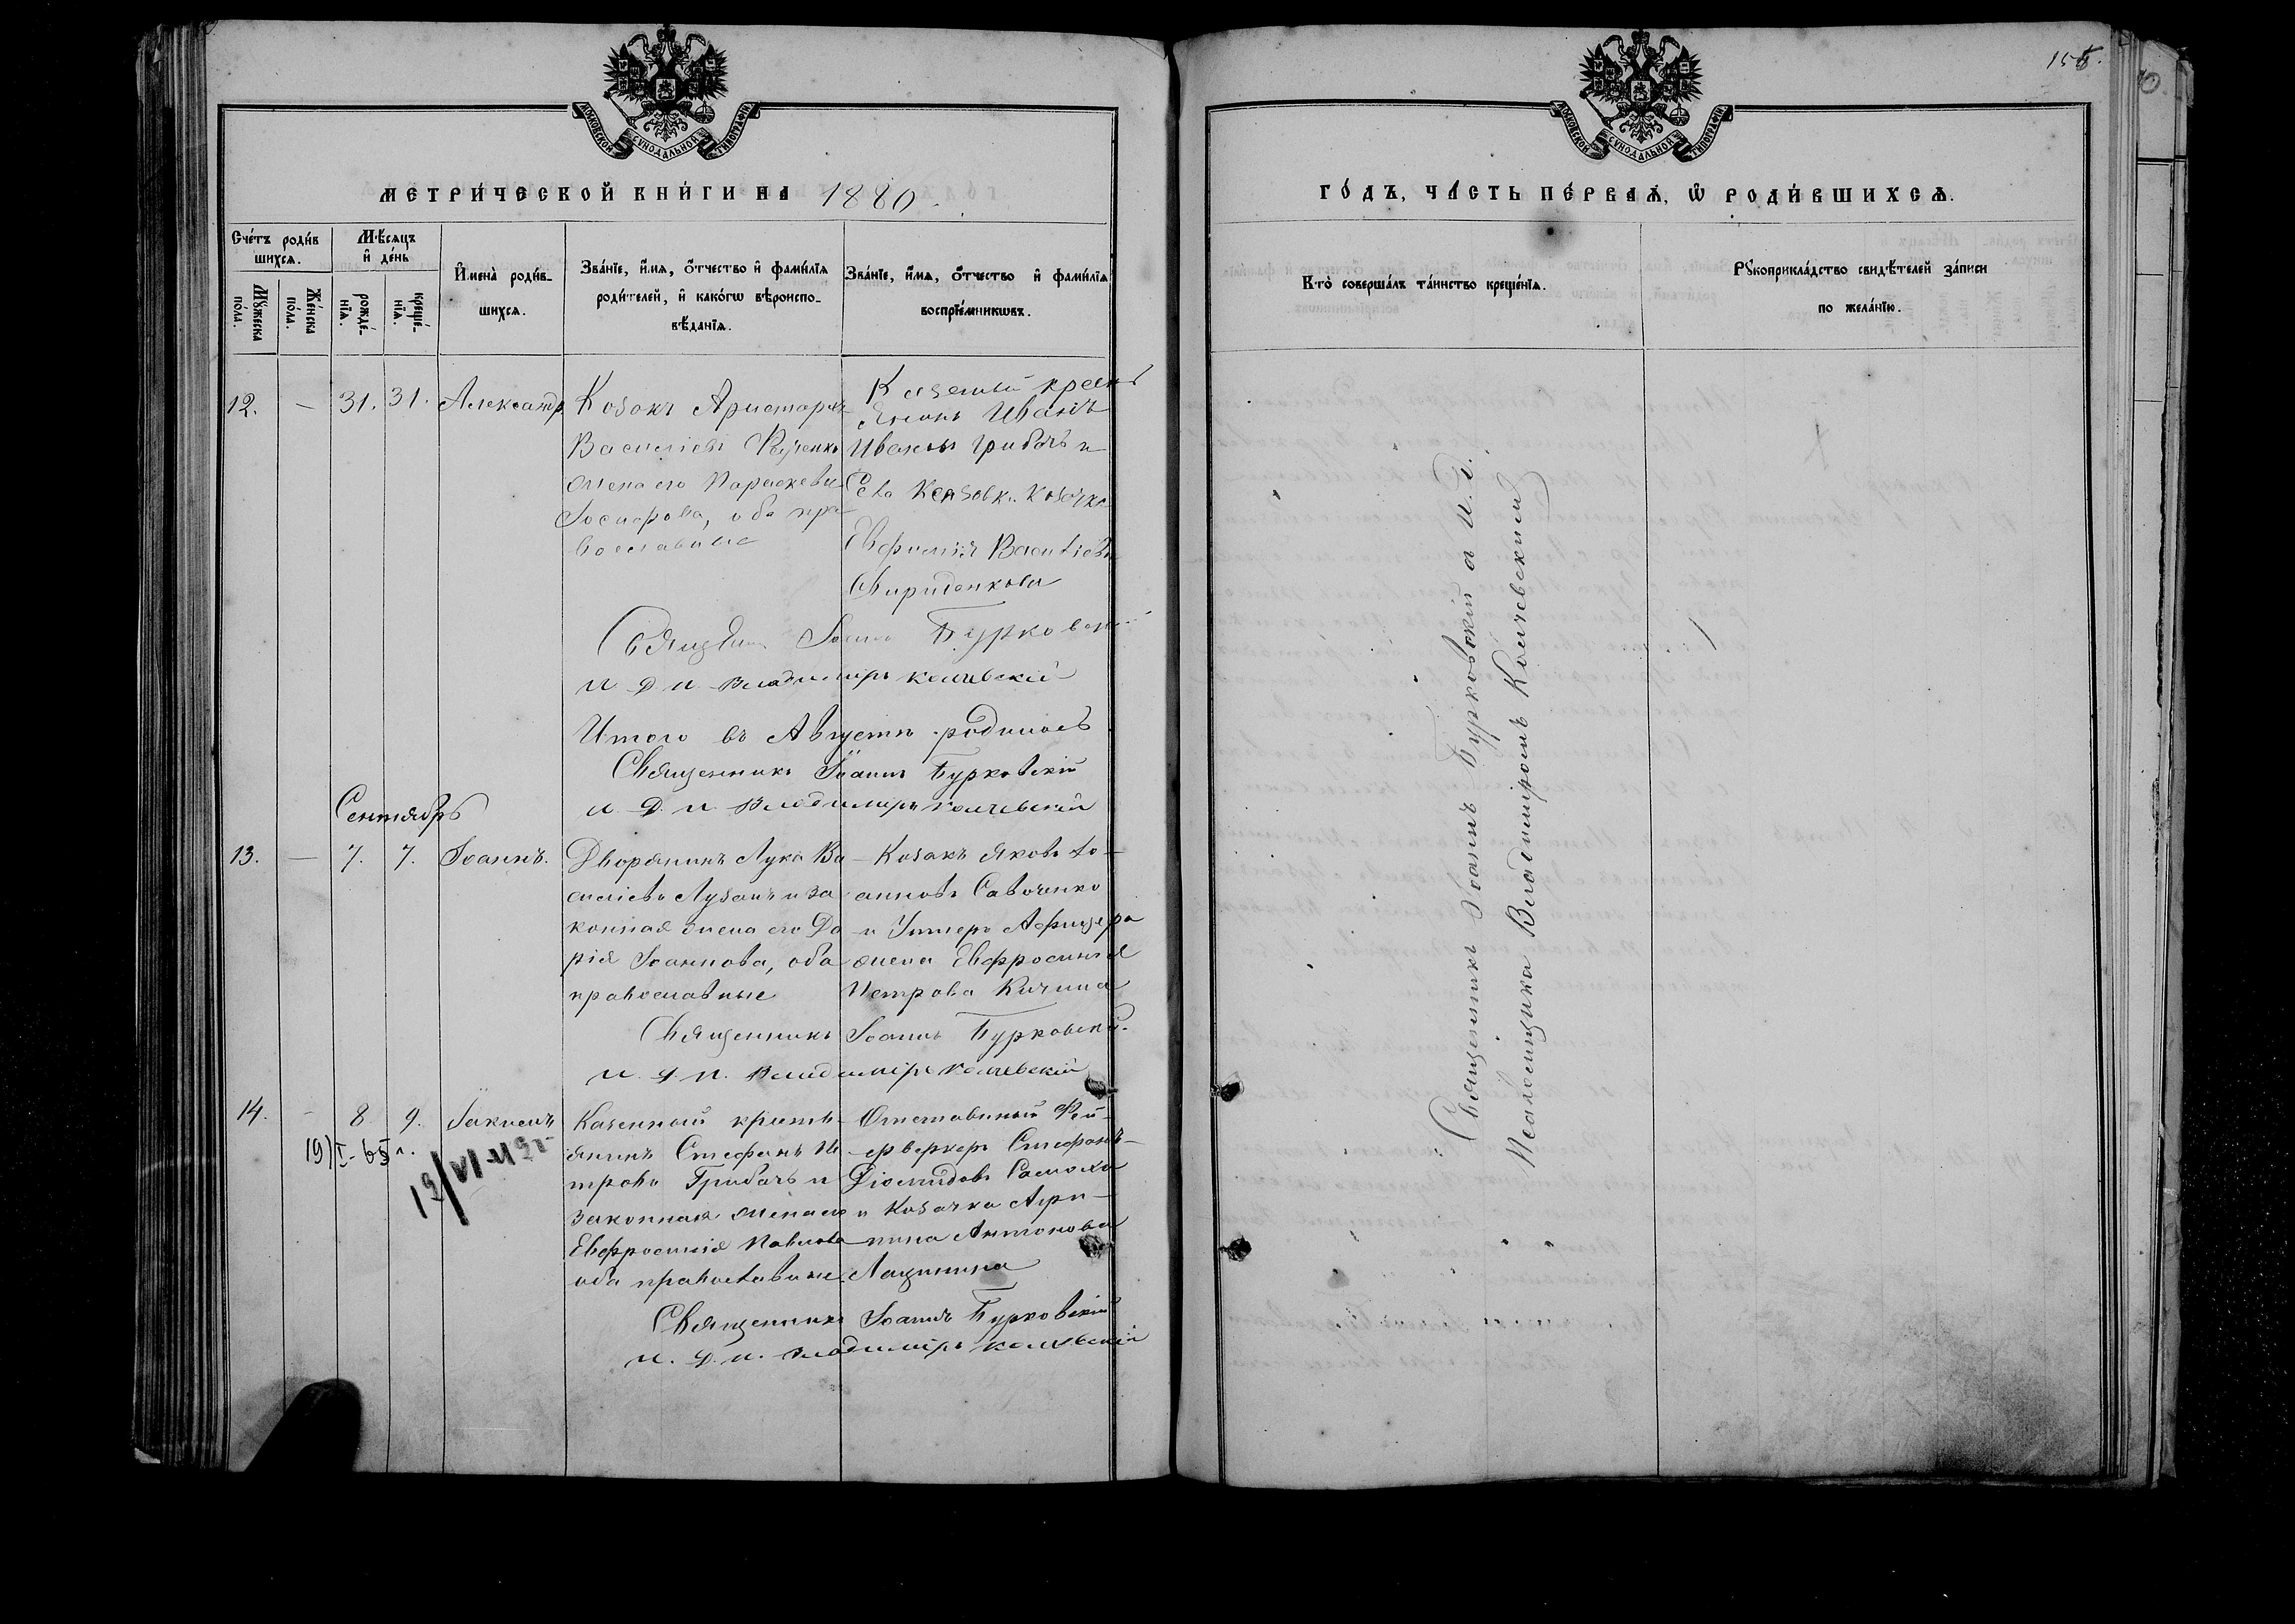 МОСКОВСКОЙ СУНОДАЛЬНОЙ ТИПОГРАФІИ
МЕТРИ́ЧЕСКОЙ КНИ́ГИ НА 1880
Сче́тъ роди́вшихся.
Му́жеска по́ла.
Же́нска по́ла.
Мѣ́сяцъ и҆ де́нь
рожде́нїя.
креще́нїя.
И҆мена̀ роди́вшихся.
Зва́нїе, и҆́мя, ѻ҆́тчество и҆ фами́лїя
роди́телей, и҆ како́гѡ вѣроиспо-
вѣ́данїя.
Зва́нїе, и҆́мя, ѻ҆́тчество и҆ фами́лїя
воспрїе́мникѡвъ.
12. — 31. 31. Александр
Козакъ Аристархъ
Василіевъ
жена его Параскева
Іосифова, оба пра
вославные
Казенный крестъ
янинъ Иванъ
Ивановъ Грибачъ и
Козачка
Евфимія Василіева
Свириденкова
Іоаннъ Бурковскій
и д п Владиміръ Колчевскій
Итого въ Августѣ родилось
Священникъ Іоаннъ Бурковскій
и. д. п Владиміръ Колчевскій
Сентябрь
13. — 7. 7. Іоаннъ.
Дворянинъ Лука Ва
силіевъ Лузанъ и за
конная жена его Да
рія Іоаннова, оба
православные
Козакъ Яковъ Іо-
анновъ Савоченко
и Унтеръ Афицера
жена Евфросинія
Петрова Кичина
Священникъ Іоаннъ Бурковскій.
и. д. п. Владиміръ Колчевскій
14. - 8 9. Іакимъ
19) I - 65 г.
Казенный кресть
янинъ Стефанъ Пе
тровъ Грибачъ и
законная жена его
Евфросинія Павлова
оба православные
Отставный Фей-
ерверкеръ Стефанъ
Діомидовъ Самоха
и Козачка Агри-
пина Антонова
Лащинина
Священникъ Іоаннъ Бурковскій
и. д. п. Владиміръ Колчевскій
155.
МОСКОВСКОЙ СУНОДАЛЬНОЙ ТИПОГРАФІИ
ГО́ДЪ, ЧА́СТЬ ПЕ́РВАЯ, Ѡ҆ РОДИ́ВШИХСЯ.
Кто̀ соверша́лъ та́инство креще́нїя.
Рꙋкоприкла́дство свидѣ́телей за́писи
по жела́нїю.
Священникъ Іоаннъ Бурковскій а и. д.
Псаломщика Владиміромъ Колчевскимъ